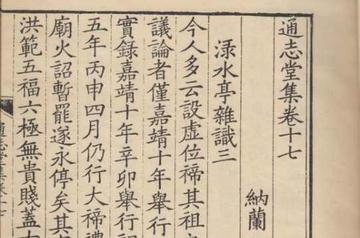 通志堂集卷十七
納蘭
渌水亭雜識三
今人多云設虛位禘其祖
議論者僅嘉靖十年舉行
實錄嘉靖十年辛卯舉行初
五年丙申四月仍行大禘禮
廟火詔暫罷遂永停矣其
洪範五福六極無貴賤蓋古